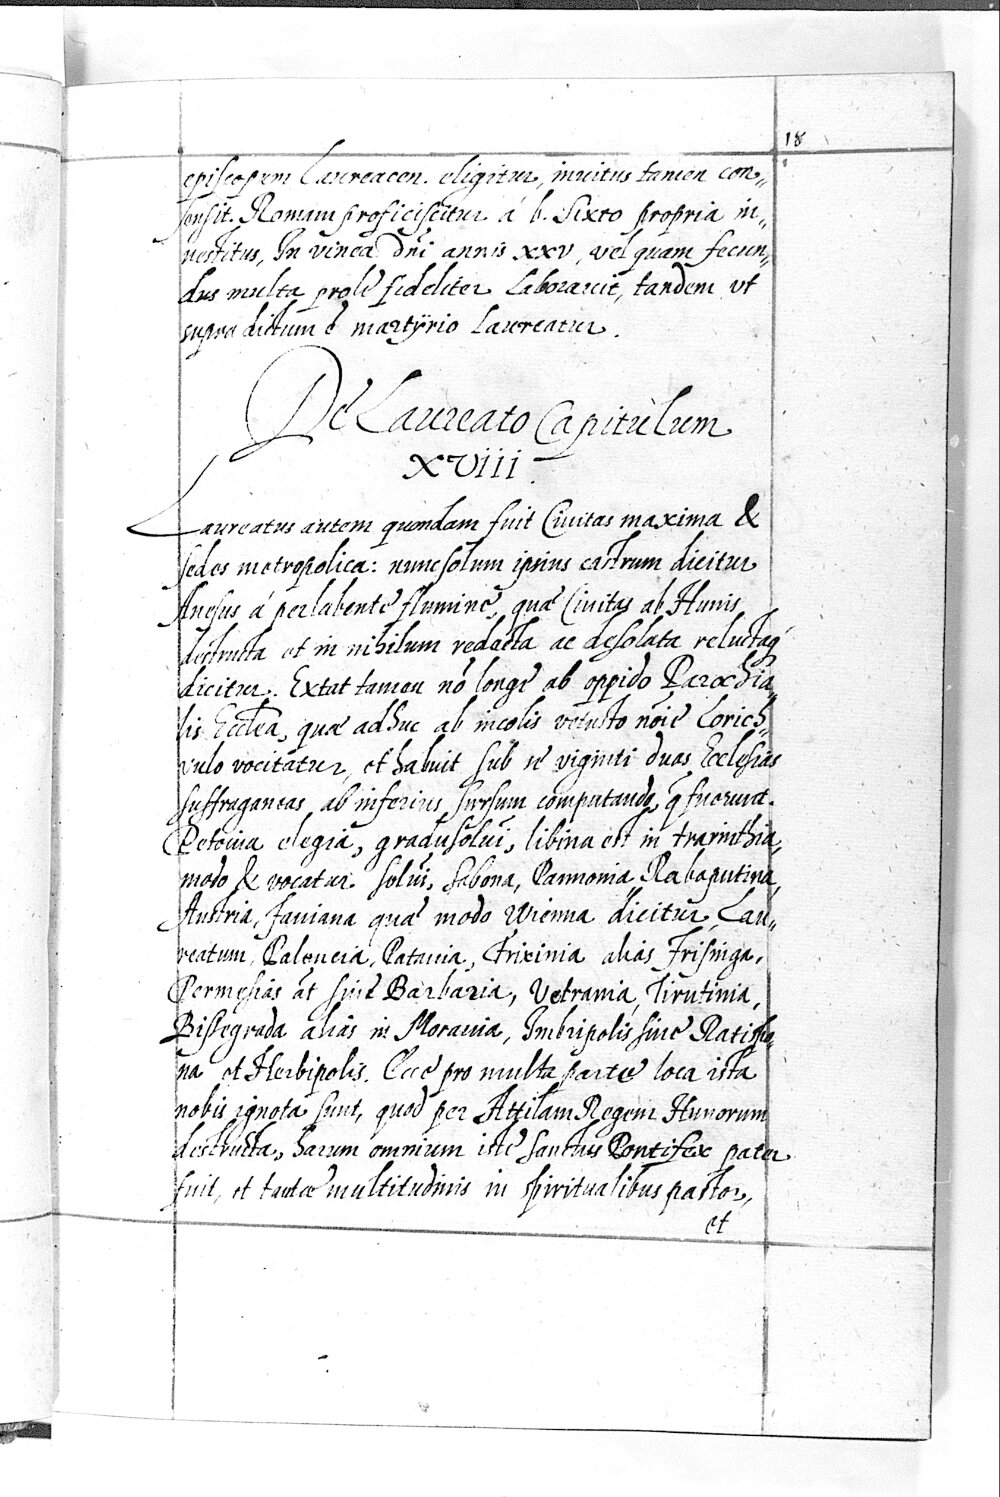 18
episcopum Laureacen. eligitur, inuitus tamen con„
sensit. Romam proficiscitur á b. Sixto propria in„
uestitus, In vinea Dñi annis xxv, vel quam fecun„
dus multa prole fideliter Laborauit, tandem vt
supra dictum ẽ martÿrio Laureatur.
De Laureato Capitulum
XVIII.
Laureatus autem quondam fuit Ciuitas maxima &
sedes metropolica: nunc solum ipsius castrum dicitur
Anesus á perlabente flumine, quæ Ciuitas ab Hunis
destructa et in nihilum redacta ac desolata
dicitur. Extat tamen nõ longe ab oppido Parochia„
lis Ecclẽa, quæ adhuc ab incolis vetusto nõie Lorich„
vulo vocitatur, et habuit sub se viginti duas Ecclesias
suffraganeas, ab inferius sursum computando, q̃ fuerunt.
Petouia elegia, gradusolui, libina est in trarinthia,
modo & vocatur solui, Sabona, Pannonia Rabaputina,
Austria, Fauiana quæ modo Wienna dicitur, Lau„
reatum, Palencia, Patauia, Frixinia aliàs Frisinga,
Permesias at siue Barbaria, Vetrania, Tirutinia,
Bissegrada aliàs in Morauia, Imbripolis siue Ratispo„
na et Herbipolis. Ecce pro multa parte loca ista
nobis ignota sunt, quod per Attilam Regem Hunorum
destructa, harum omnium iste Sanctus Pontifex pater
fuit, et tantæ multitudinis in spiritualibus pastor,
et